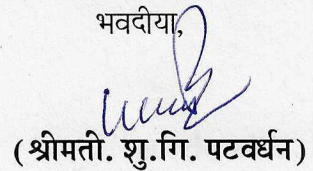 भवदीया,
(श्रीमती. शु.गि. पटवर्धन)